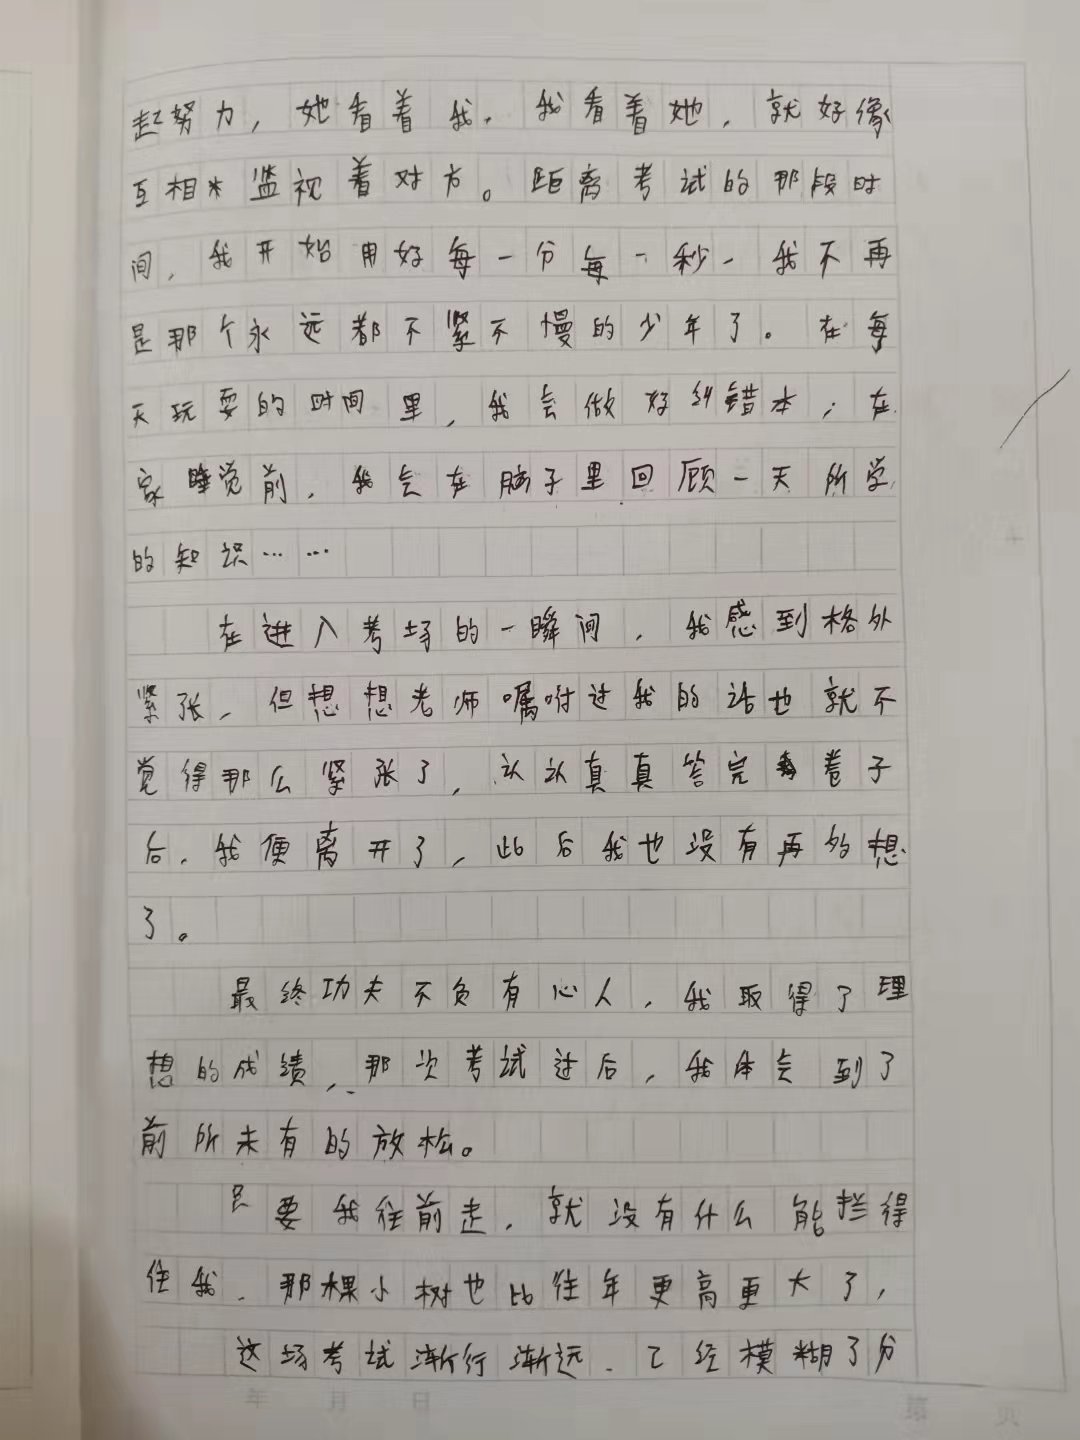 起努力，她看着我，我看着她，就好像
互相监视着对方。距离考试的那段时
间，我开始用好每一分每一秒，我不再
是那个永远都不紧不慢的少年了。在每
天玩耍的时间里，我会做好纠错本；在
家睡觉前，我会在脑子里回顾一天所学
的知识……
在进入考场的一瞬间，我感到格外
紧张，但想想老师嘱咐过我的话也就不
觉得那么紧张了，认认真真答完卷子
后，我便离开了，此后我也没有再多想
了。
最终功夫不负有心人，我取得了理
想的成绩，那次考试过后，我体会到了
前所未有的放松。
只要我往前走，就没有什么能拦得
住我。那棵小树也比往年更高更大了，
这场考试渐行渐远，已经模糊了分
年 月 日
第 页